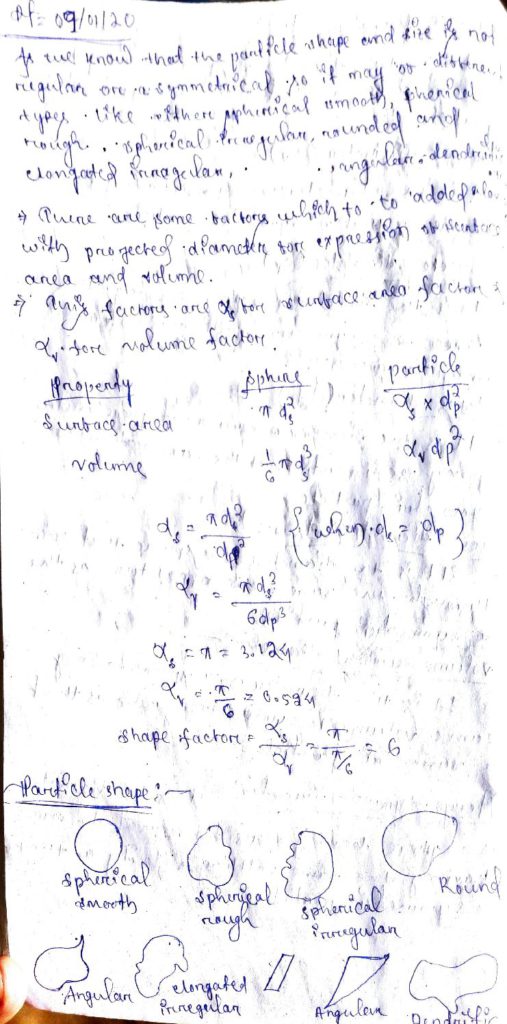 Dt = 09/01/20
As we know that the particle shape and size is not
regular or asymmetrical so it may
types like either spherical smooth, spherical
rough, spherical irregular, rounded and
elongated irregular, angular, dendritic
⇒ There are some factors which to to added
with projected diameter for expression of
area and volume.
⇒ factors are αs for surface area factor &
αv for volume factor.
Property Sphere particle
Surface area πds² αs x dp²
volume 1/6 πds³ αv dp²
αs = πds²/dp² { when ds = dp }
αv = πds³/6dp³
αs = π = 3.124
αv = π/6 = 0.524
shape factor = αs/αv = π/π/6 = 6
Particle shape :-
spherical smooth spherical rough spherical irregular Round
Angular elongated irregular Angular Dendritic